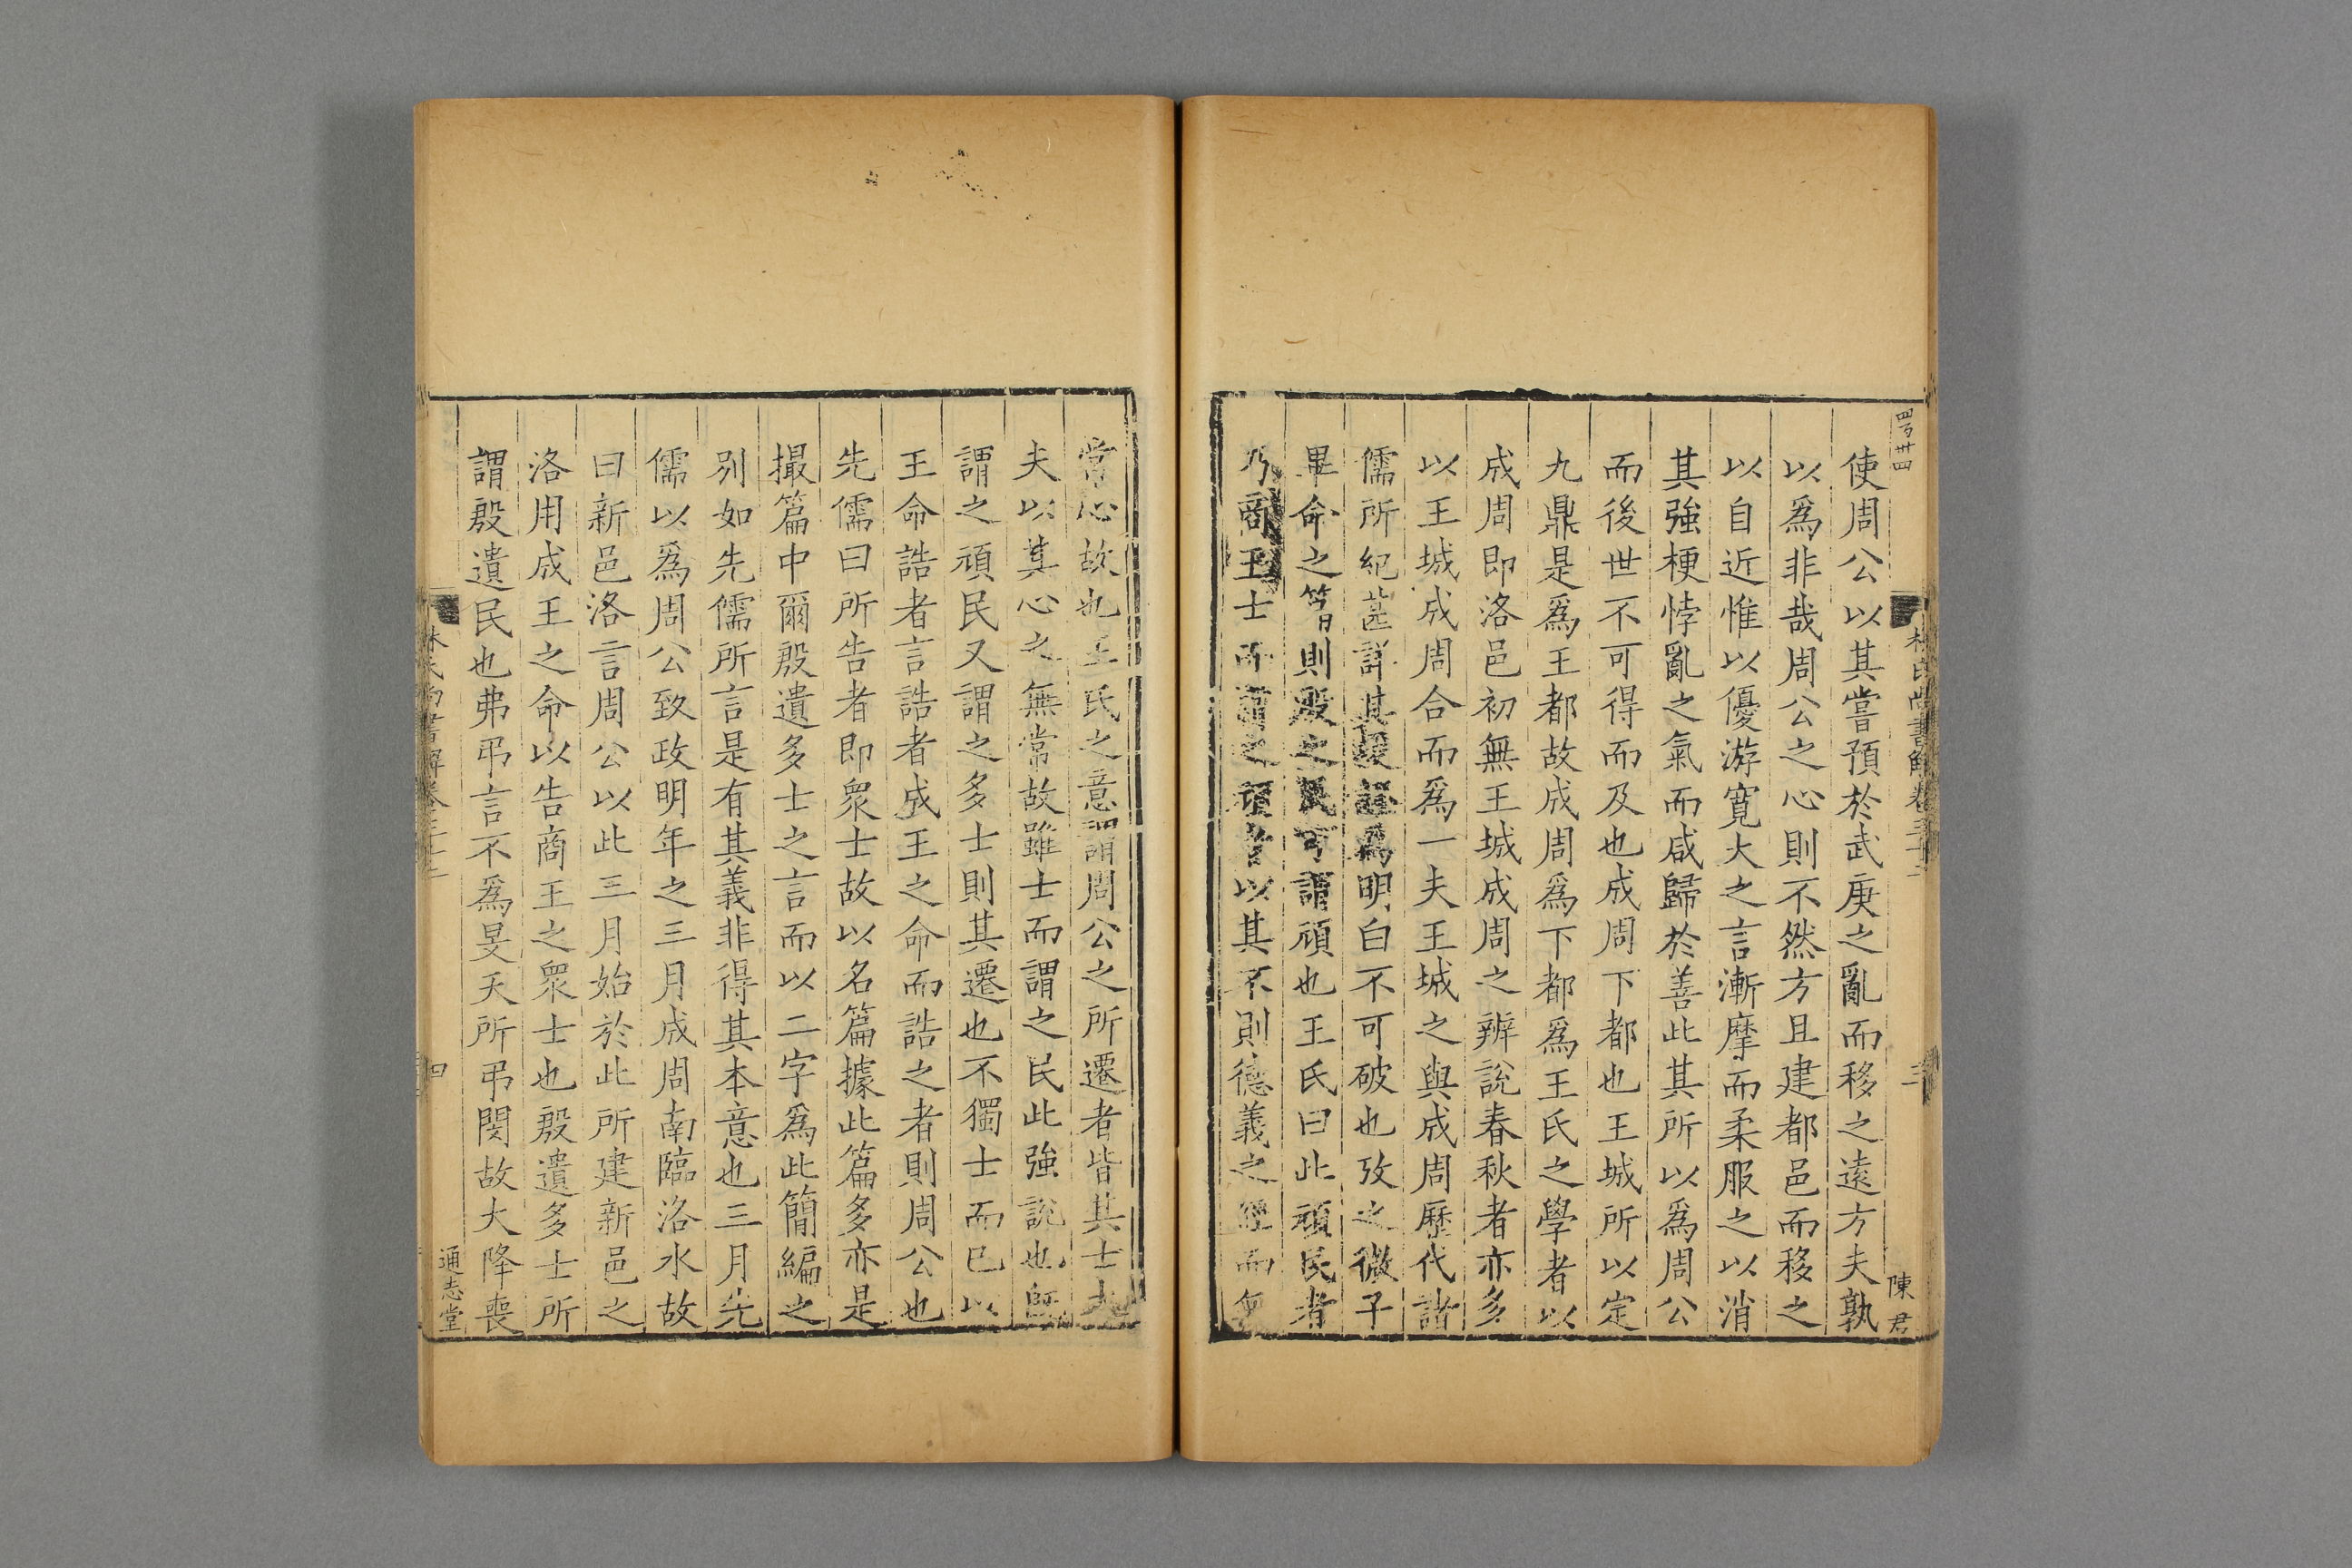 使周公以其嘗預於武庚之亂而移之遠方夫孰
以爲非哉周公之心則不然方且建都邑而移之
以自近惟以優游寛大之言漸摩而柔服之以消
其強梗悖亂之氣而咸歸於善此其所以爲周公
而後世不可得而及也成周下都也王城所以定
九鼎是爲王都故成周爲下都爲王氏之學者以
成周即洛邑初無王城成周之辨說春秋者亦多
以王城成周合而爲一夫王城之與成周歷代諸
儒所紀甚詳其援證爲明白不可破也攷之微子
畢命之簪則殷之民可謂頑也王氏曰此頑民者
乃商王士而謂之頑者以其不則德義之經而無
常心故也王氏之意謂周公之所遷者皆其士大
夫以其心之無常故雖士而謂之民此強說也旣
謂之頑民又謂之多士則其遷也不獨士而已以
王命誥者言誥者成王之命而誥之者則周公也
先儒曰所告者即衆士故以名篇據此篇多亦是
撮篇中爾殷遺多士之言而以二字爲此簡編之
別如先儒所言是有其義非得其本意也三月先
儒以爲周公致政明年之三月成周南臨洛水故
曰新邑洛言周公以此三月始於此所建新邑之
洛用成王之命以告商王之衆士也殷遺多士所
謂殷遺民也弗弔言不爲旻天所弔閔故大降喪
林氏尚書解卷三十二
四
通志堂
林氏尚書解卷三十二
三
陳君